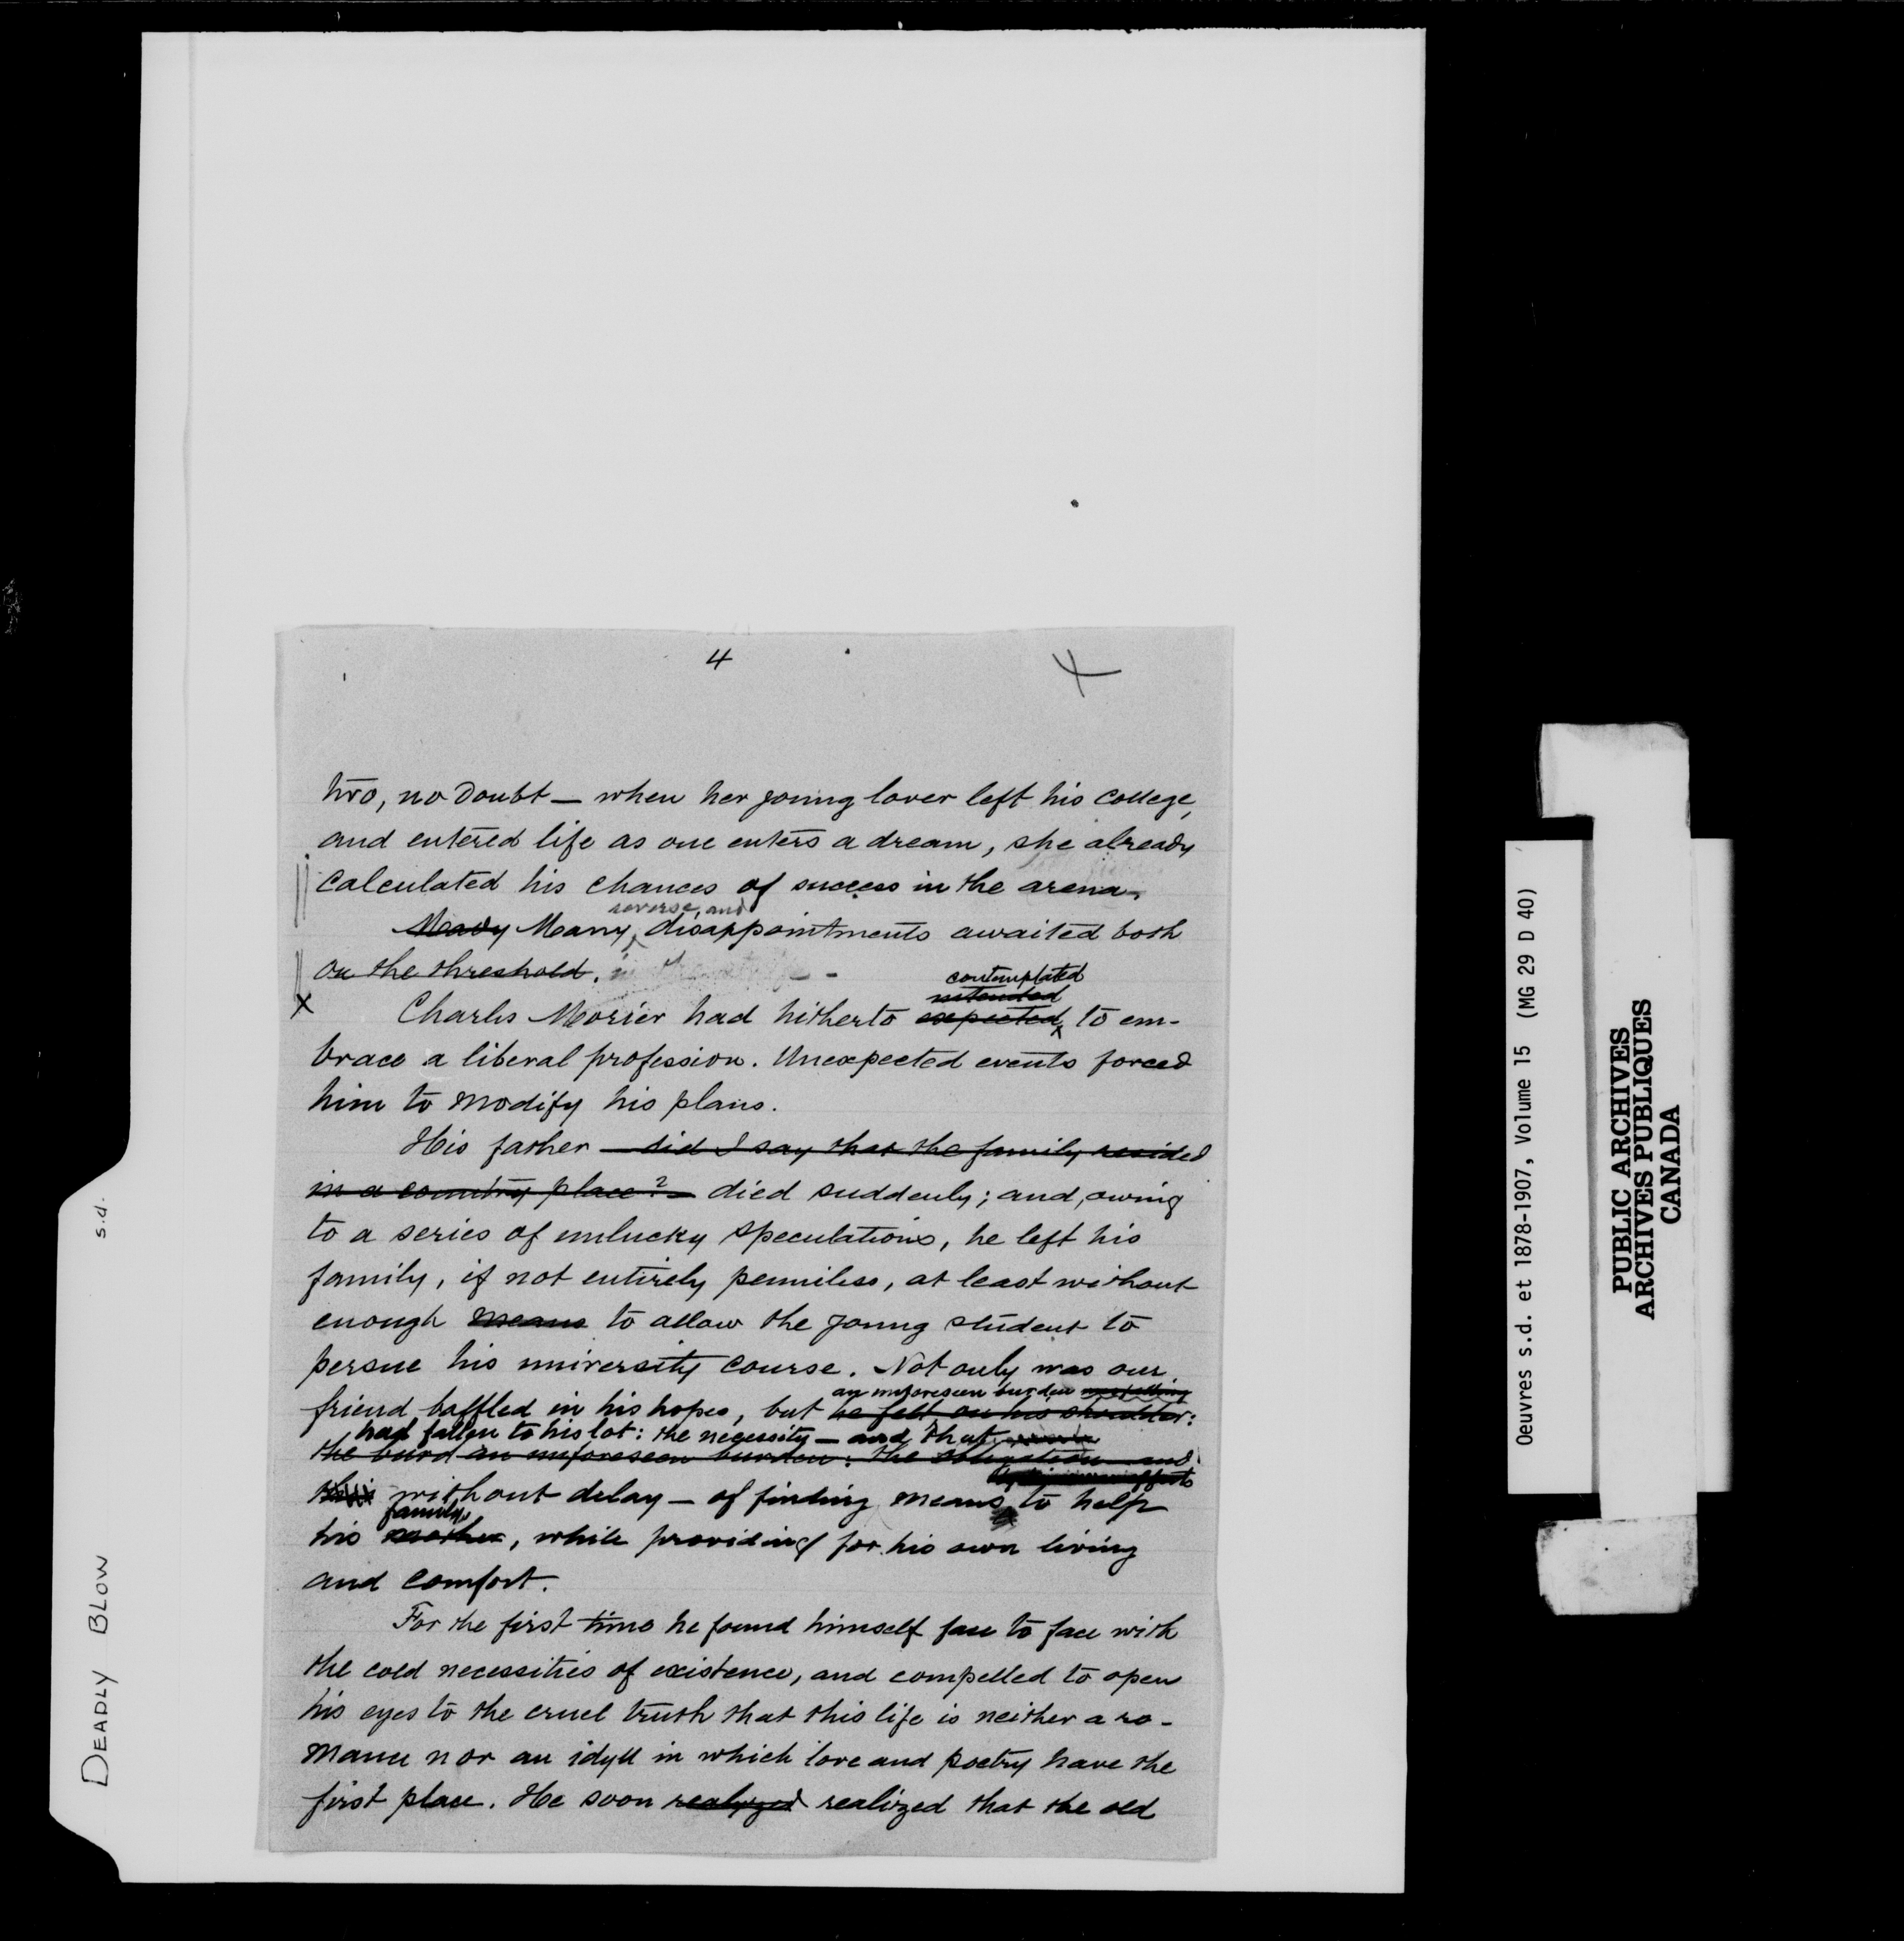 4
two, no doubt — when her young lover left his college,
and entered life as one enters a dream, she already
calculated his chances of success in the arena.
reverse, and
Many Many, disappointments awaited both
on the threshold.
contemplated
intended
Charles Morier had hitherto expected, to em-
brace a liberal profession. Unexpected events forced
him to modify his plans.
His father — did I say that the family resided
in a country place? — died suddenly; and, owing
to a series of unlucky speculations, he left his
family, if not entirely penniless, at least without
enough means to allow the young student to
persue his university course. Not only was our
an unforeseen burden
friend baffled in his hopes, but he felt on his shoulder:
had fallen to his lot: the necessity — and that
the burd an unforeseen burden: the obligation — and
efforts
without delay — of finding means to help
family
his mother, while providing for his own living
and comfort.
For the first time he found himself face to face with
the cold necessities of existence, and compelled to open
his eyes to the cruel truth that this life is neither a ro-
mance nor an idyll in which love and poetry have the
first place. He soon realyzed realized that the old
DEADLY BLOW s.d.
Oeuvres s.d. et 1878-1907, Volume 15 (MG 29 D 40)
PUBLIC ARCHIVES
ARCHIVES PUBLIQUES
CANADA